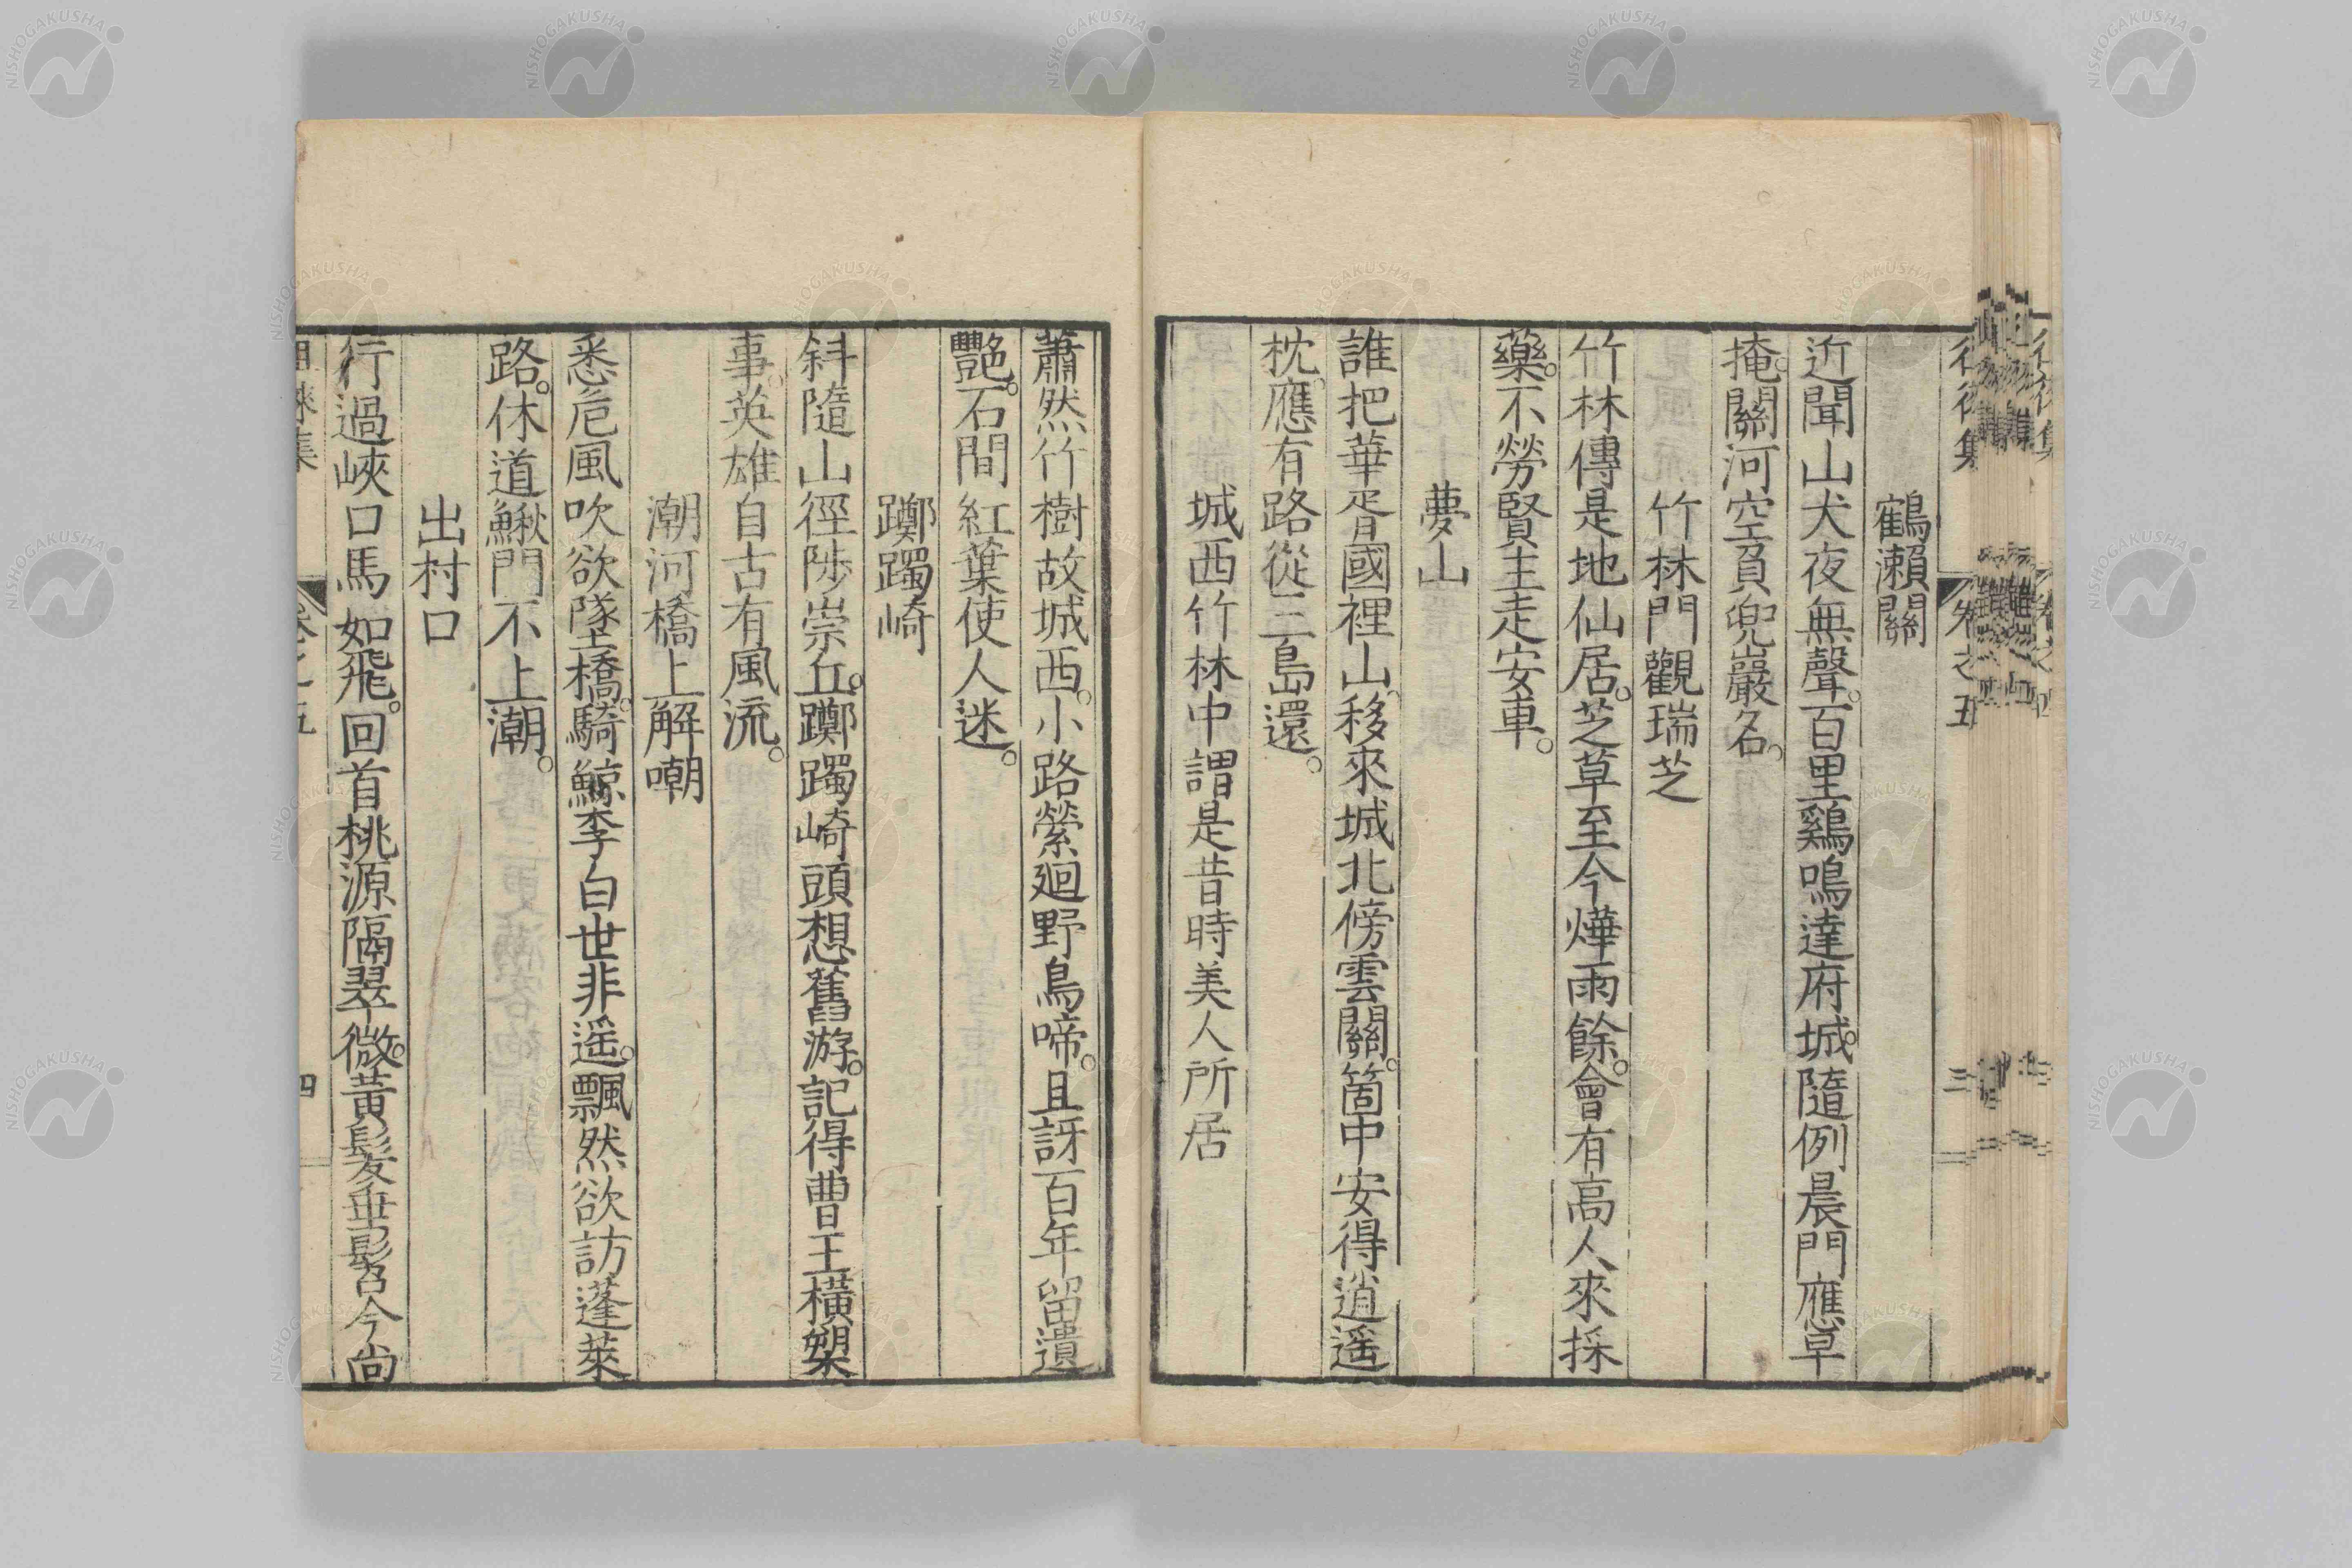 鶴瀬關
近聞山犬夜無聲。百里鷄鳴達府城。隨例晨門應早
掩。關河空負兜巖名。
竹林門觀瑞芝
竹林傳是地仙居。芝草至今燁雨餘。會有高人來採
藥。不勞賢主走安車。
夢山
誰把華胥國裡山。移來城北傍雲關。箇中安得逍遥
枕。應有路從三島還。
城西竹林中謂是昔時美人所居
蕭然竹樹故城西。小路縈廻野鳥啼。且訝百年留遺
艷。石間紅葉使人迷。
躑躅崎
斜隨山徑陟崇丘。躑躅崎頭想舊游。記得曹王橫槊
事。英雄自古有風流。
潮河橋上解嘲
悉危風吹欲墜橋。騎鯨李白世非遥。飄然欲訪蓬萊
路。休道鰍門不上潮。
出村口
行過峽口馬如飛。回首桃源隔翠微。黃髮垂髫今尚
卷之五
四
卷之五
三
NISHOGAKUSHA